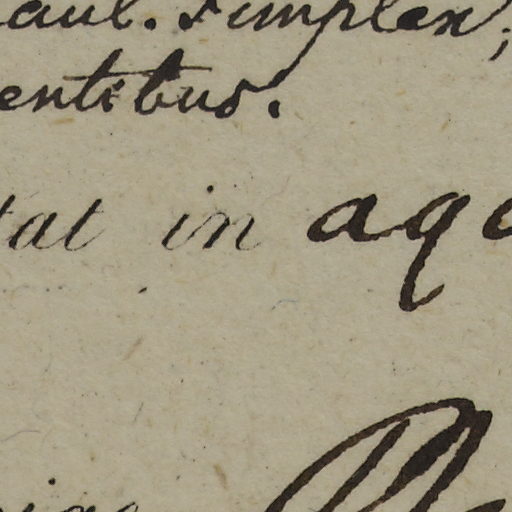 aul. simplex,
entibus.
tat in aq